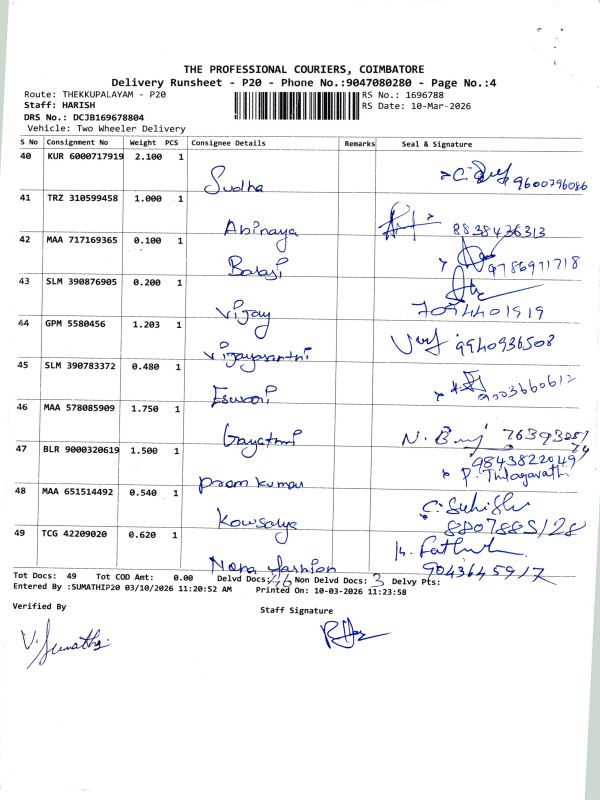 THE PROFESSIONAL COURIERS, COIMBATORE
Delivery Runsheet - P20 - Phone No.:9047080280 - Page No.:4
Route: THEKKUPALAYAM - P20
RS No.: 1696788
Staff: HARISH
RS Date: 10-Mar-2026
DRS No.: DCJB169678804
Vehicle: Two Wheeler Delivery
S No Consignment No Weight PCS Consignee Details Remarks Seal & Signature
40 KUR 6000717919 2.100 1
Sudha 9600796086
41 TRZ 310599458 1.000 1
Abinaya 8838436313
42 MAA 717169365 0.100 1
Balaji 9786971718
43 SLM 390876905 0.200 1
Vijay 7094401919
44 GPM 5580456 1.203 1
Vijayasanthi 9940936508
45 SLM 390783372 0.480 1
Eswari 9003660612
46 MAA 578085909 1.750 1
Gayatmi N.
47 BLR 9000320619 1.500 1
9843822049
Prem kumar P. Thilagavathi
48 MAA 651514492 0.540 1
Kowsalya 8807885128
49 TCG 42209020 0.620 1
Nora fashion 9043645917
Tot Docs: 49 Tot COD Amt: 0.00 Delvd Docs: 46 Non Delvd Docs: 3 Delvy Pts:
Entered By :SUMATHIP20 03/10/2026 11:20:52 AM Printed On: 10-03-2026 11:23:58
Verified By
Staff Signature
V. Sumathi